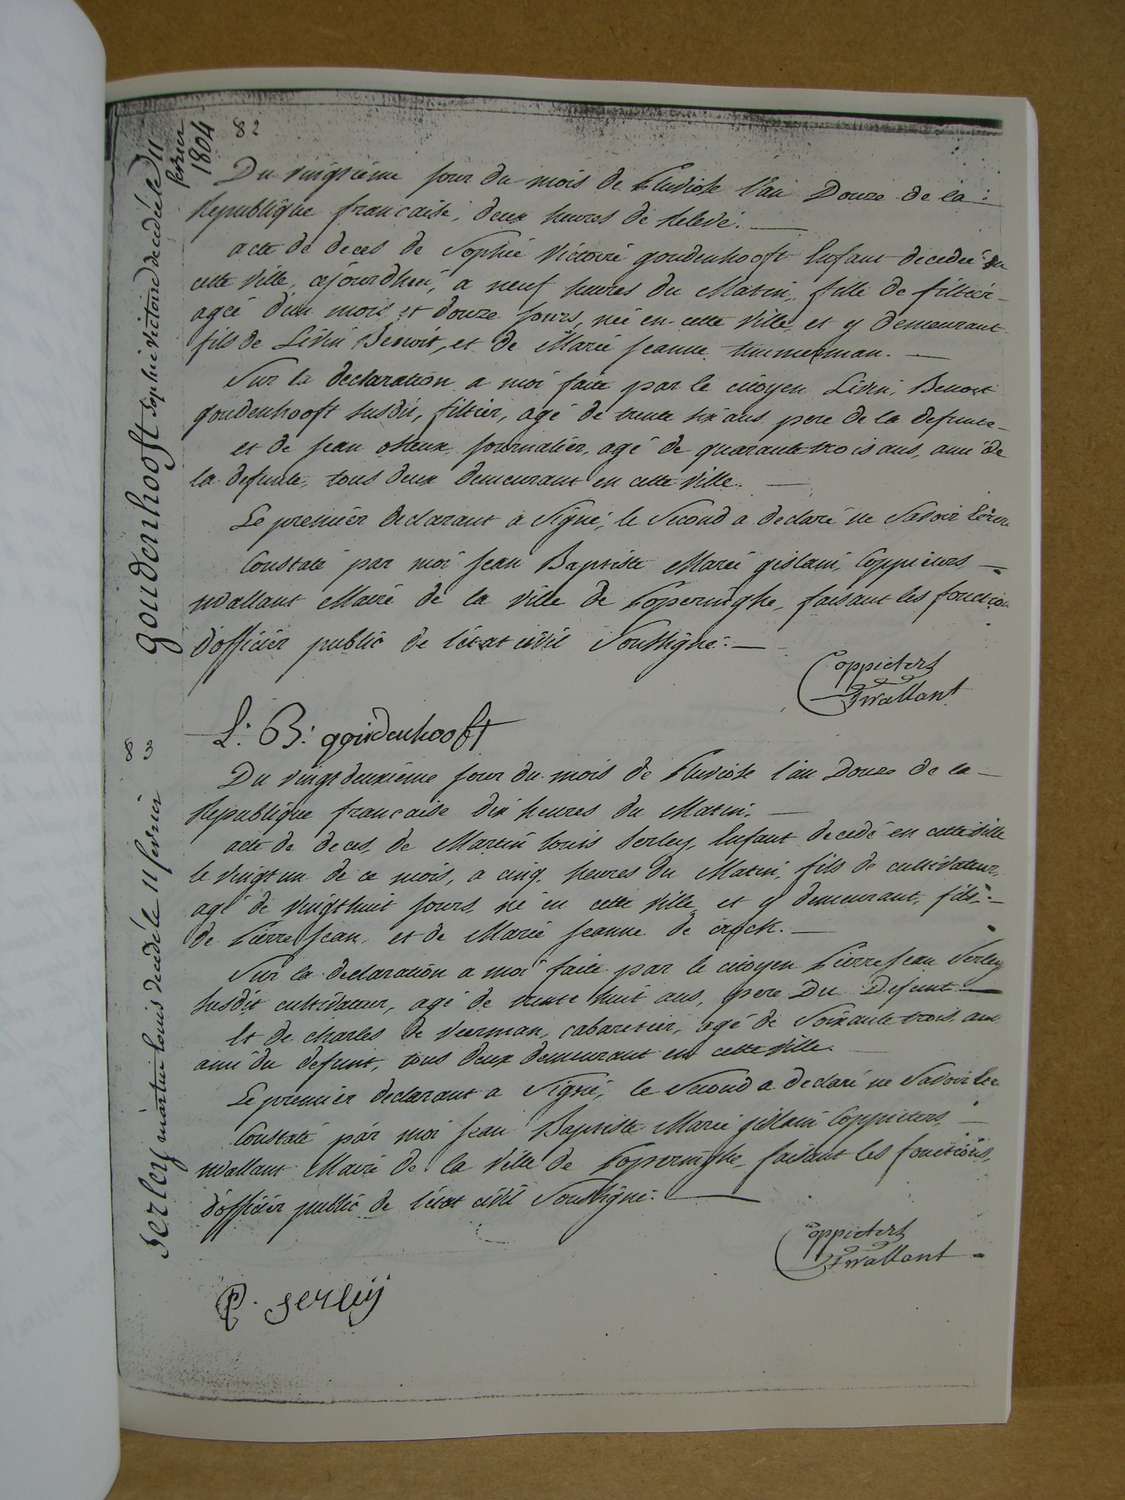 82
goudenhooft Sophie victoire decedée le 11
fevrier
1804
Du vingtieme jour du mois de Pluviose l'an Douze de la
Republique francaise, deux heures de Relevé.
acte de deces de Sophie Victoire goudenhooft Enfant decedée en
cette ville, ajourdhui, a neuf heures du Matin, fille de filtier
agé d'un mois et douze jours, née en cette ville et y demeurant
fils de Livin Benoit, et de Marie Jeanne timmerman.
Sur la declaration a moi faite par le citoyen Livin Benoit
goudenhooft susdit, filtier, agé de trente six ans pere de la defunte
et de jean journalier, agé de quarante trois ans, ami de
la defunte, tous deux demeurant en cette ville.
Le premier declarant a Signé, le Second a declaré ne Savoir
Constaté par moi Jean Baptiste Marie gislain Coppieters
wallant Maire de la ville de Poperinghe, faisant les fonction
d'officier public de l'etat civil Soussigné.
Coppieters
Twallant
L. B. goudenhooft
83
Serley martin louis decedé le 11 fevrier
Du vingt deuxieme jour du mois de Pluviose l'an Douze de la
Republique francaise dix heures du Matin.
acte de deces de Martin Louis Serley Enfant decedé en cette ville
le vingt un de ce mois, a cinq heures du Matin, fils de cultivateur,
agé de vingt huit jours, né en cette ville et y demeurant, fils
de Pierre Jean, et de Marie Jeanne de crock.
Sur la declaration a moi faite par le citoyen Pierre Jean Serley
susdit cultivateur, agé de trente huit ans, pere Du Defunt
Et de charles de Veerman, cabaretier, agé de Soixante trois ans
ami du defunt, tous deux demeurant en cette ville.
Le premier declarant a Signé, le Second a declaré ne Savoir
Constaté par moi Jean Baptiste Marie gislain Coppieters
wallant Maire de la ville de Poperinghe, faisant les fonctions
d'officier public de l'etat civil Soussigné.
Coppieters
Twallant
P. Serleij